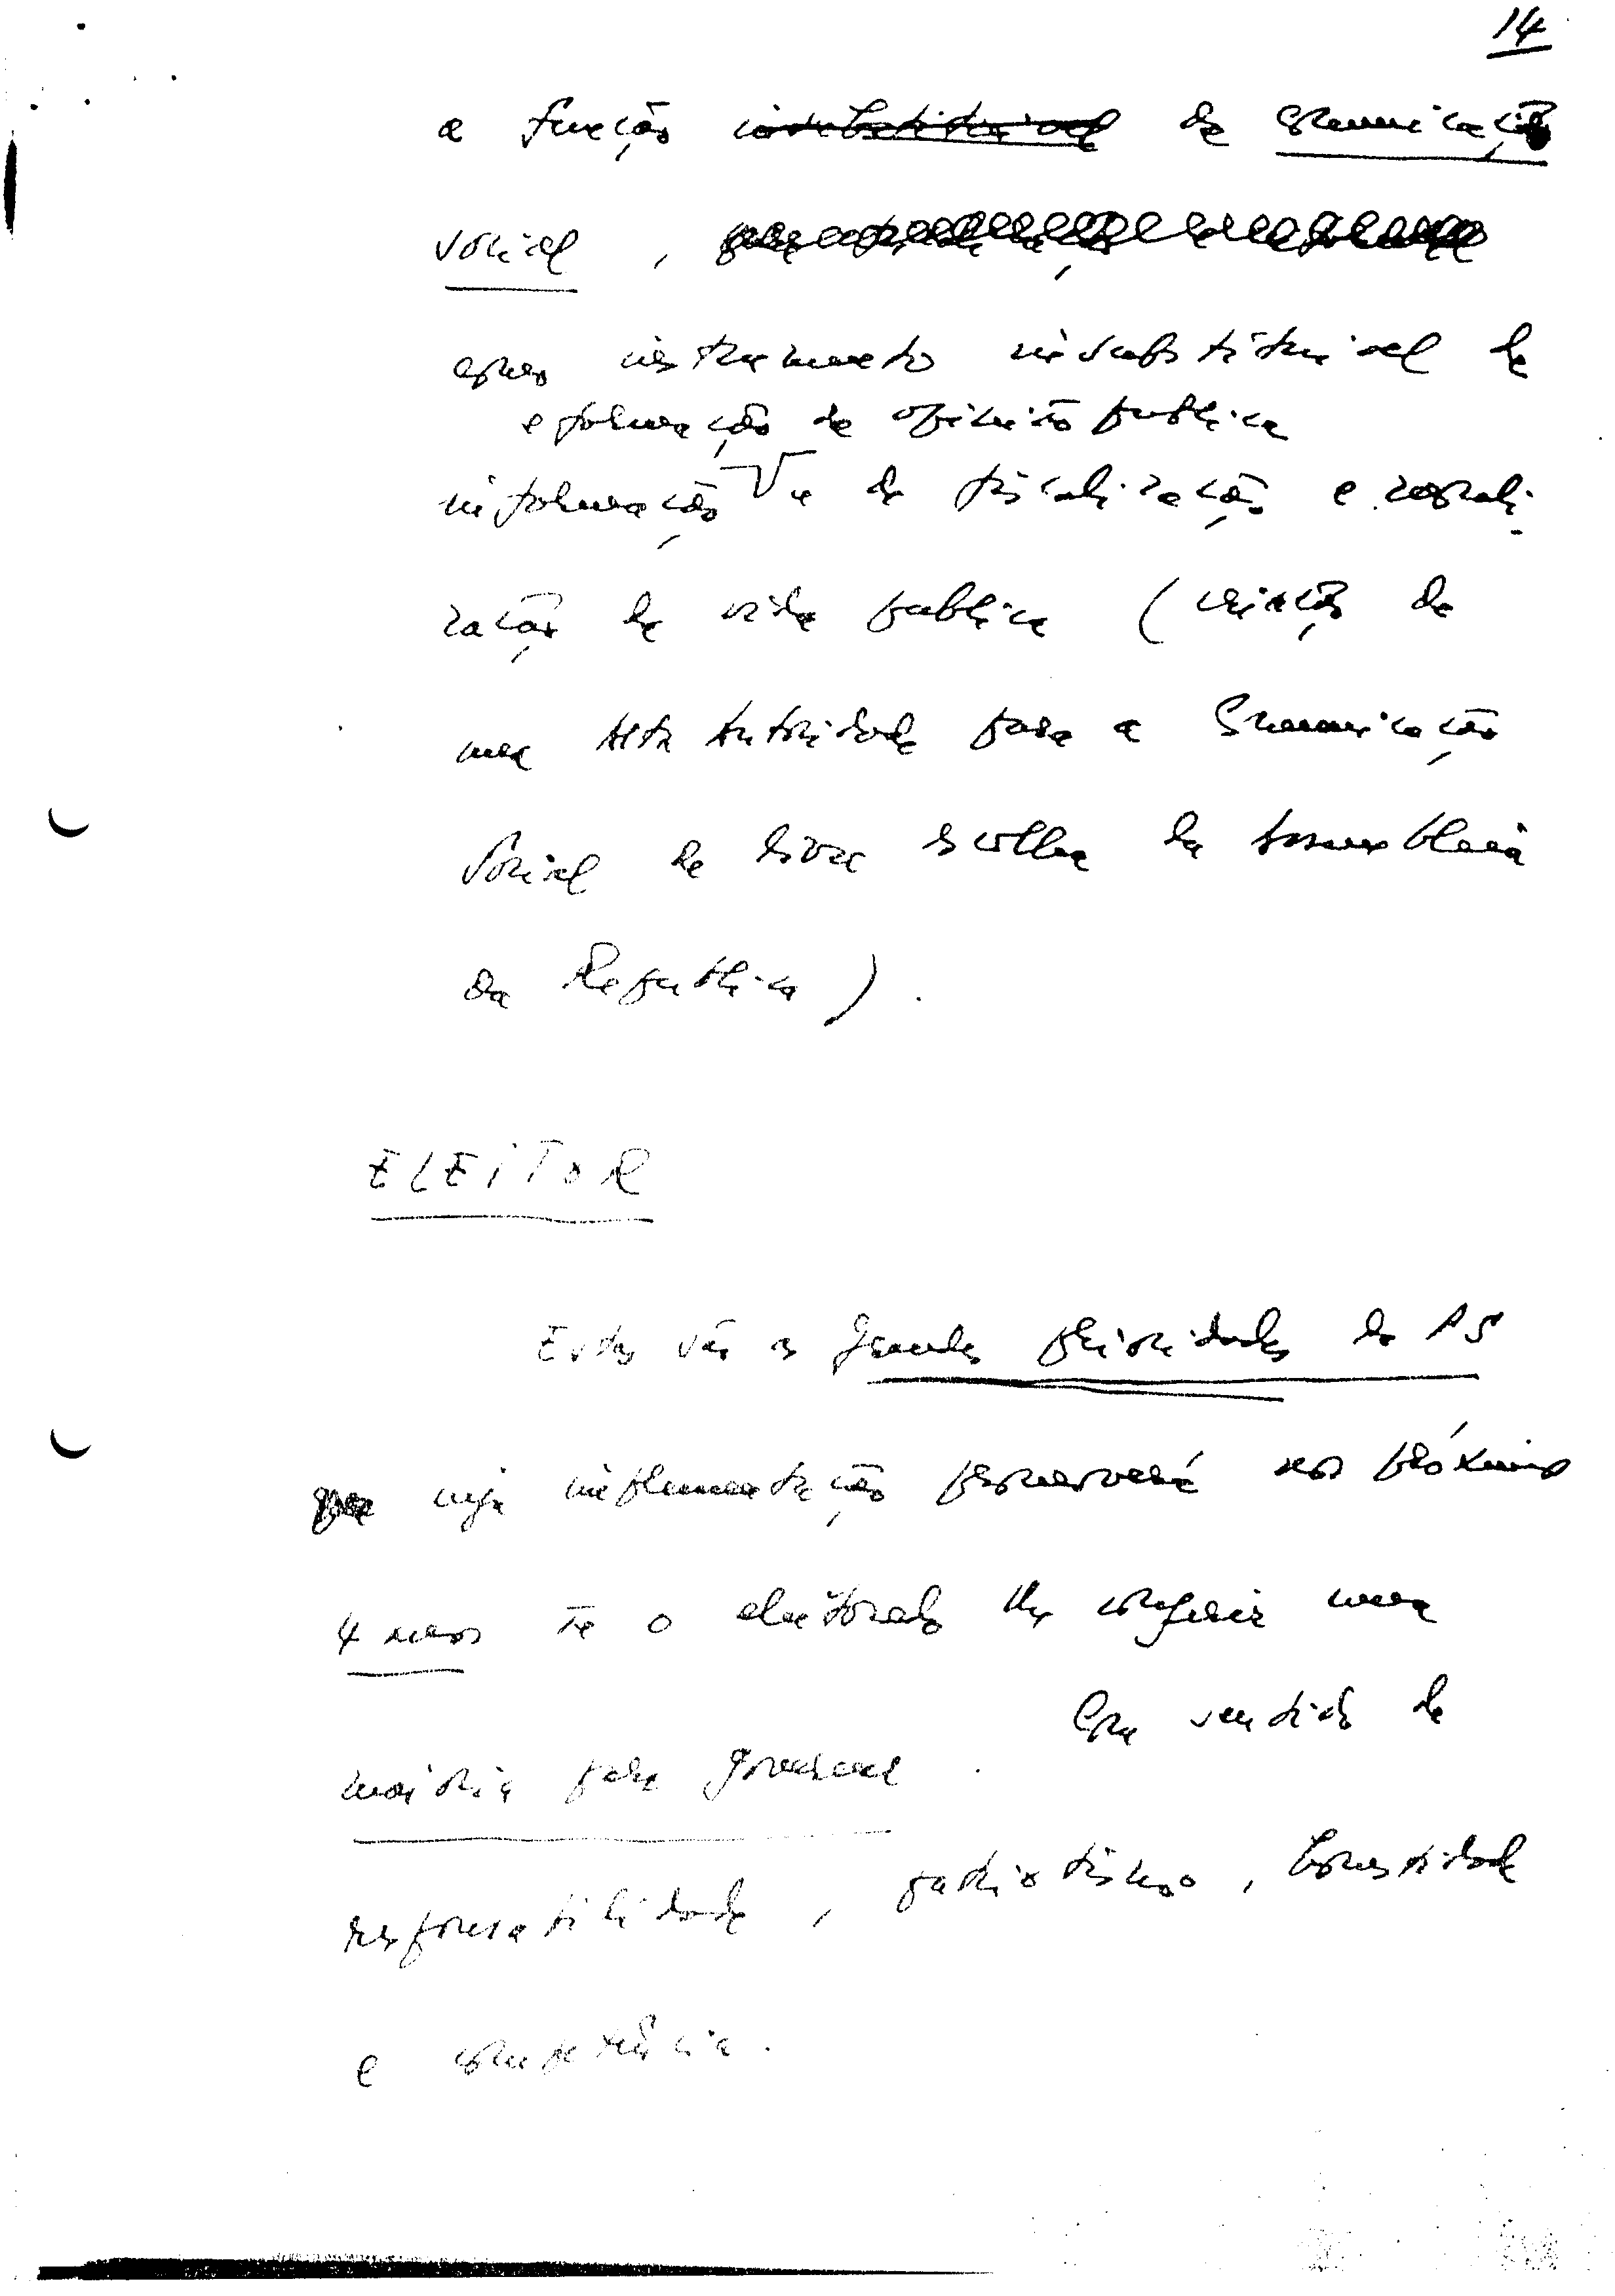 14
a função insubstituivel da comunicação
social,
como instrumento insubstituivel de
e formação da opinião publica
informação e de fiscalização e morali-
zação da vida publica (criação de
uma Alta Autoridade para a Comunicação
Social de livre escolha da Assembleia
da Republica).
ELEITOR
Estas são as grandes prioridades do PS
cuja implementação promoverá nos próximos
4 anos se o eleitorado lhe conferir uma
maioria para governar. Com sentido de
responsabilidade, patriotismo, honestidade
e competência.